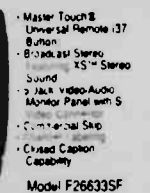 • Master Touch
Universal Remote
Button
• Broadcast Stereo
XS™ Stereo
Sound
• 5 Jack Video-Audio
Monitor Panel with S
Video Connector
• Commercial Skip
• Closed Caption
Capability
Model F26633SF